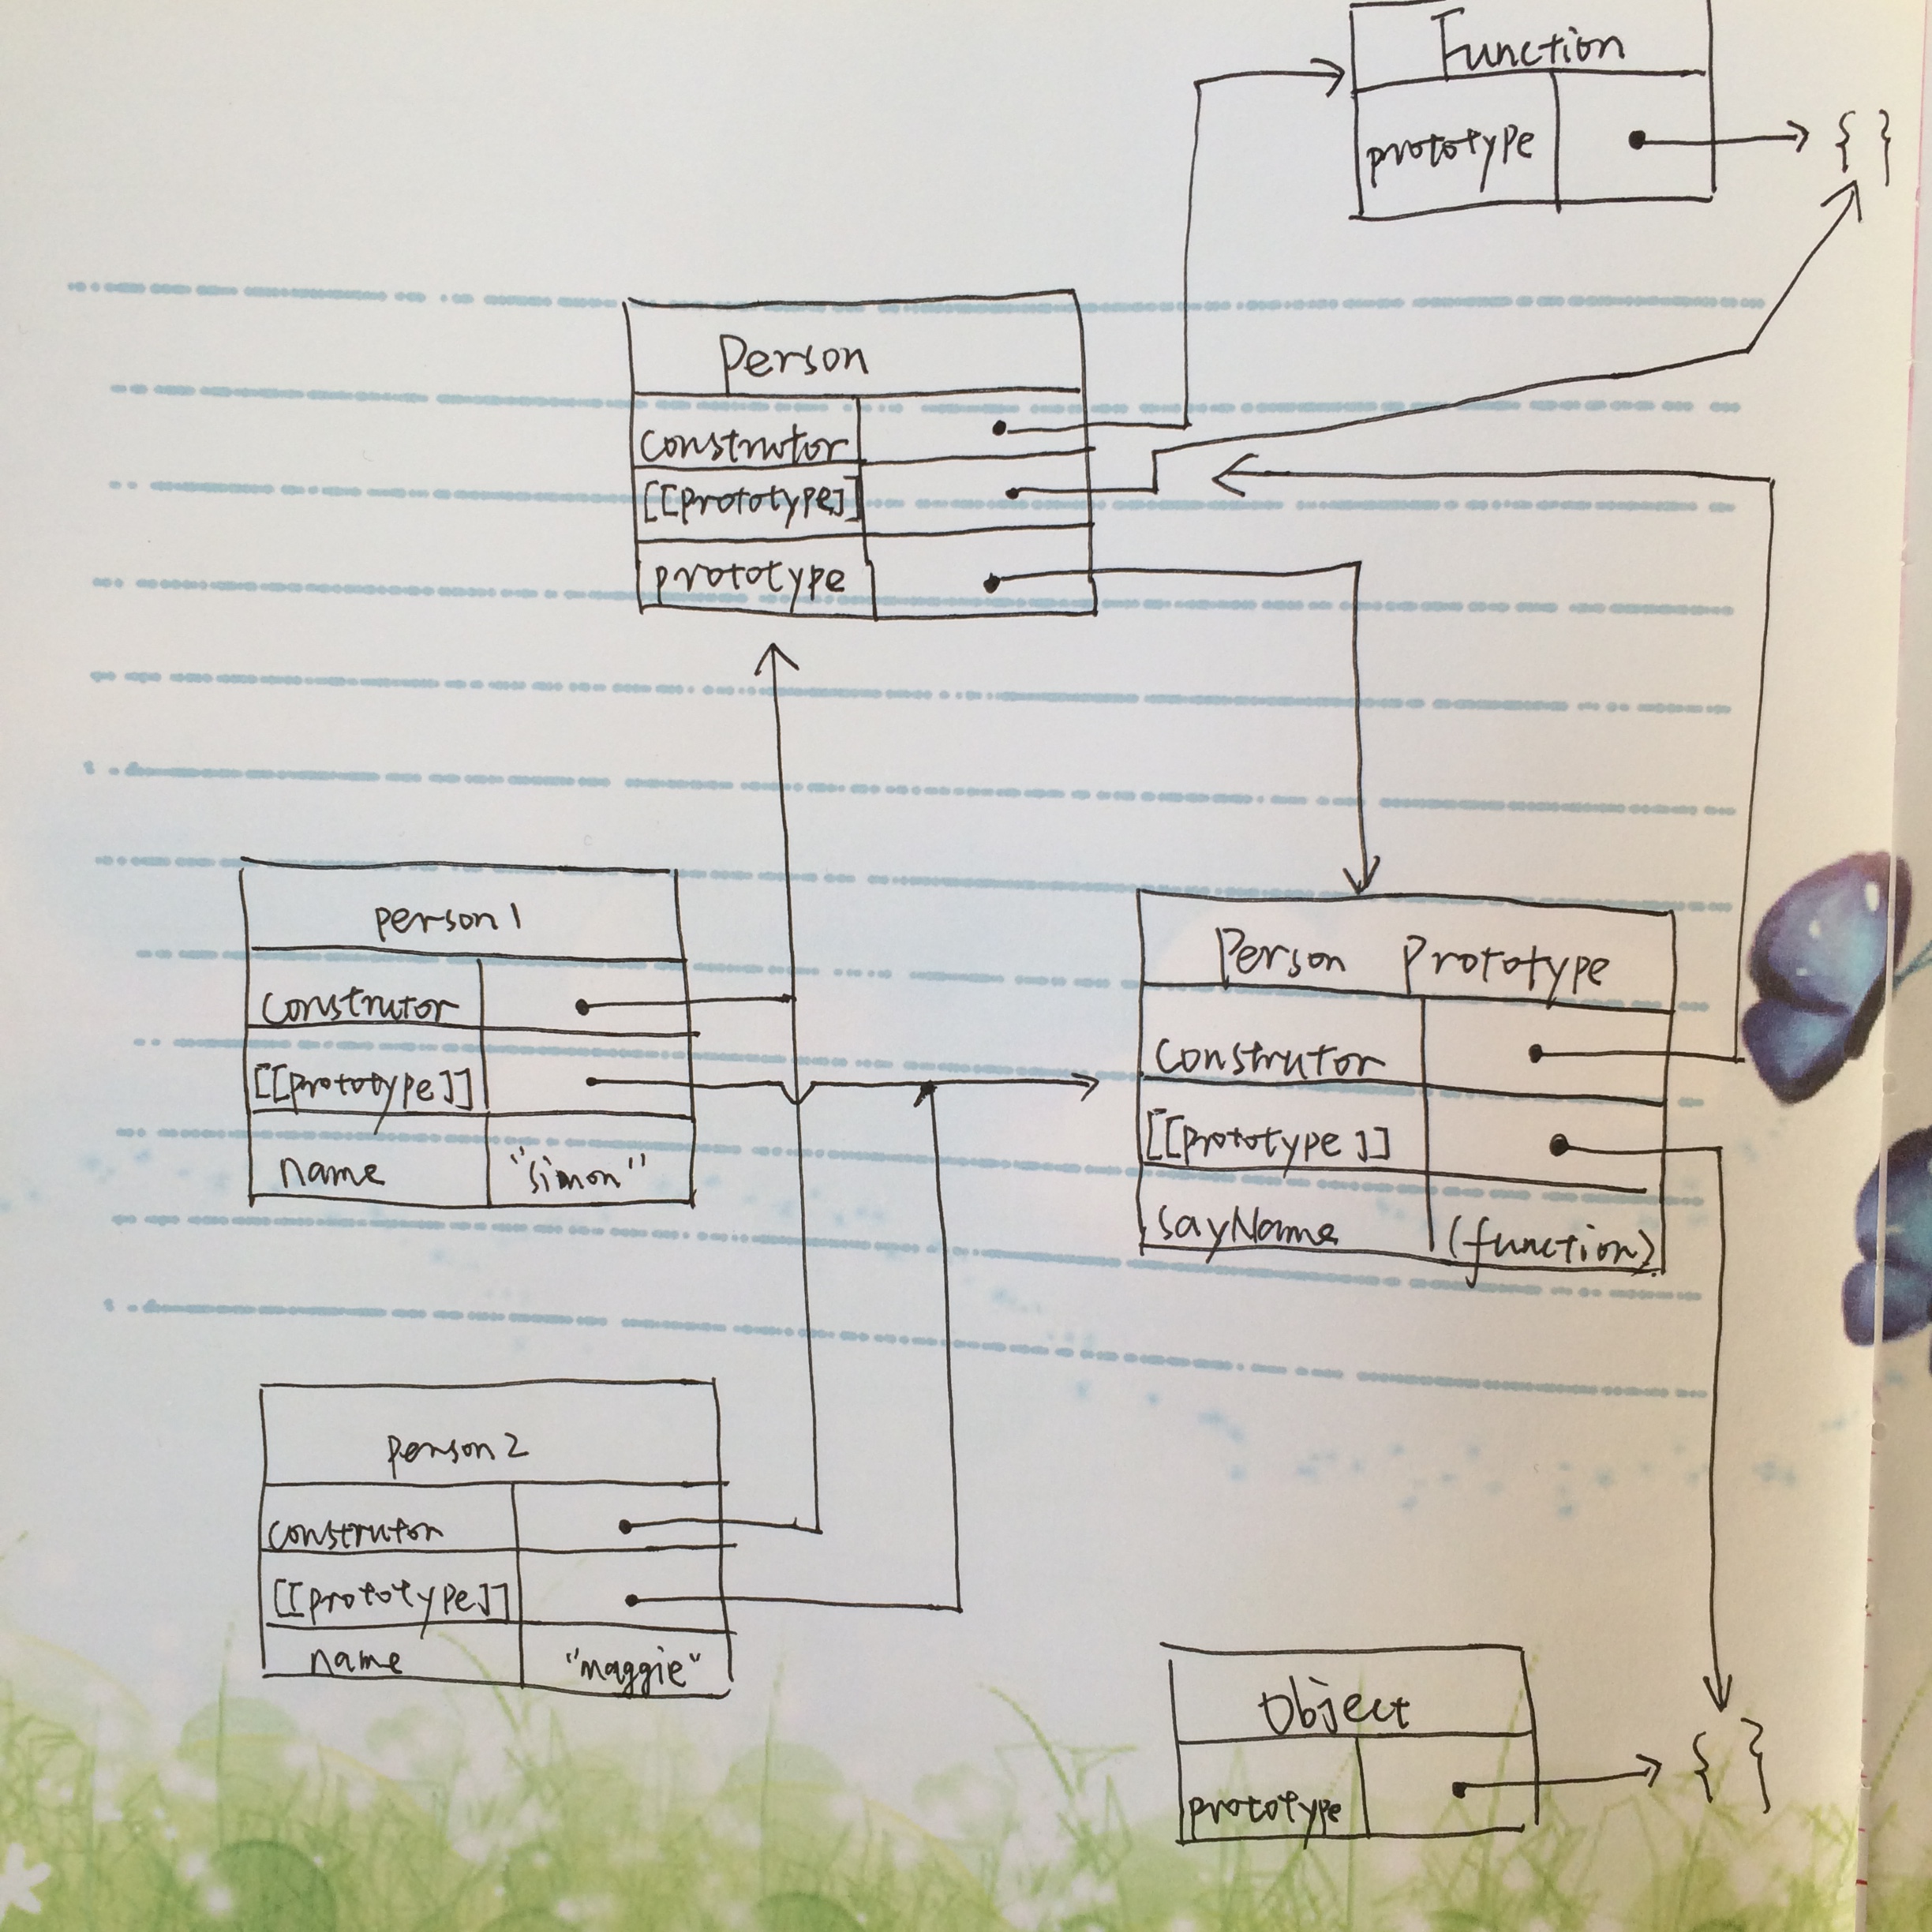 Function
prototype { }
Person
construtor
[[prototype]]
prototype
person1
construtor
[[prototype]]
name "simon"
Person Prototype
construtor
[[prototype]]
sayName (function)
person2
construtor
[[prototype]]
name "maggie"
Object
prototype { }